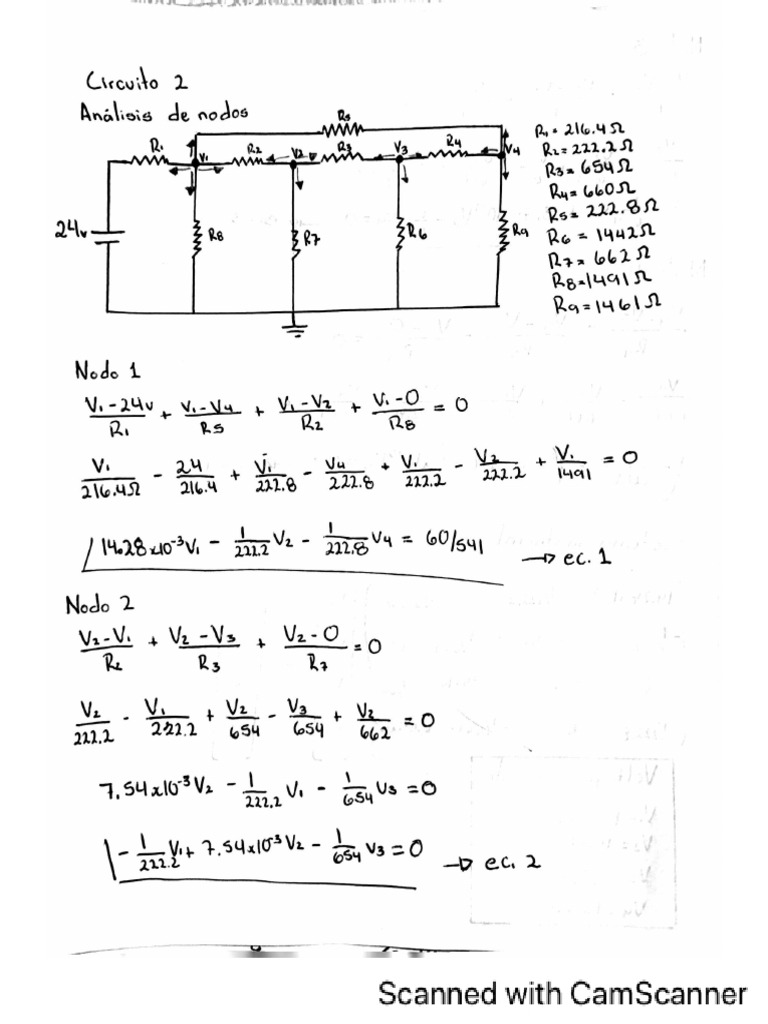 Circuito 2
Análisis de nodos
R5
R1 V1 R2 V2 R3 V3 R4 V4
24v R8 R7 R6 R9
R1 = 216.4Ω
R2 = 222.2Ω
R3 = 654Ω
R4 = 660Ω
R5 = 222.8Ω
R6 = 1442Ω
R7 = 662Ω
R8 = 1491Ω
R9 = 1461Ω
Nodo 1
(V1-24v)/R1 + (V1-V4)/R5 + (V1-V2)/R2 + (V1-0)/R8 = 0
V1/216.4Ω - 24/216.4 + V1/222.8 - V4/222.8 + V1/222.2 - V2/222.2 + V1/1491 = 0
14.28x10⁻³V1 - 1/222.2 V2 - 1/222.8 V4 = 60/541 → ec. 1
Nodo 2
(V2-V1)/R2 + (V2-V3)/R3 + (V2-0)/R7 = 0
V2/222.2 - V1/222.2 + V2/654 - V3/654 + V2/662 = 0
7.54x10⁻³V2 - 1/222.2 V1 - 1/654 V3 = 0
- 1/222.2 V1 + 7.54x10⁻³V2 - 1/654 V3 = 0 → ec. 2
Scanned with CamScanner